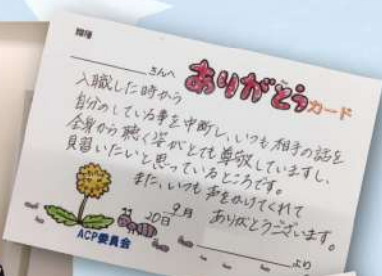 職種
さんへ ありがとうカード
入職した時から
自分のしている事を中断し、いつも相手の話を
全身から聴く姿がとても尊敬していますし、
見習いたいと思っているところです。
また、いつも声をかけてくれて
ありがとうございます。
9月
20日
より
ACP委員会